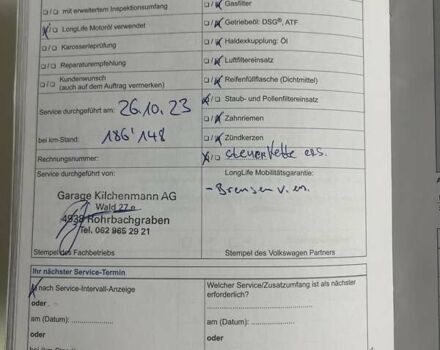 ❏/❏ mit erweitertem Inspektionsumfang
❏/❏ LongLife Motoröl verwendet
❏/❏ Karosserieprüfung
❏/❏ Reparaturempfehlung
❏/❏ Kundenwunsch
(auch auf dem Auftrag vermerken)
Service durchgeführt am: 26.10.23
bei km-Stand: 186'148
Rechnungsnummer:
Service durchgeführt von:
Garage Kilchenmann AG
Wald 27a
4938 Rohrbachgraben
Tel. 062 965 29 21
Stempel des Fachbetriebs
❏/❏ Gasfilter
❏/❏ Getriebeöl: DSG®, ATF
❏/❏ Haldexkupplung: Öl
❏/❏ Luftfiltereinsatz
❏/❏ Reifenfüllflasche (Dichtmittel)
❏/❏ Staub- und Pollenfiltereinsatz
❏/❏ Zahnriemen
❏/❏ Zündkerzen
❏/❏ Steuerkette ers.
LongLife Mobilitätsgarantie:
- Bremsen v. er.
Stempel des Volkswagen Partners
Ihr nächster Service-Termin
❏ nach Service-Intervall-Anzeige
oder
am (Datum):
oder
Welcher Service/Zusatzumfang ist als nächster
erforderlich?
oder
am (Datum):
oder